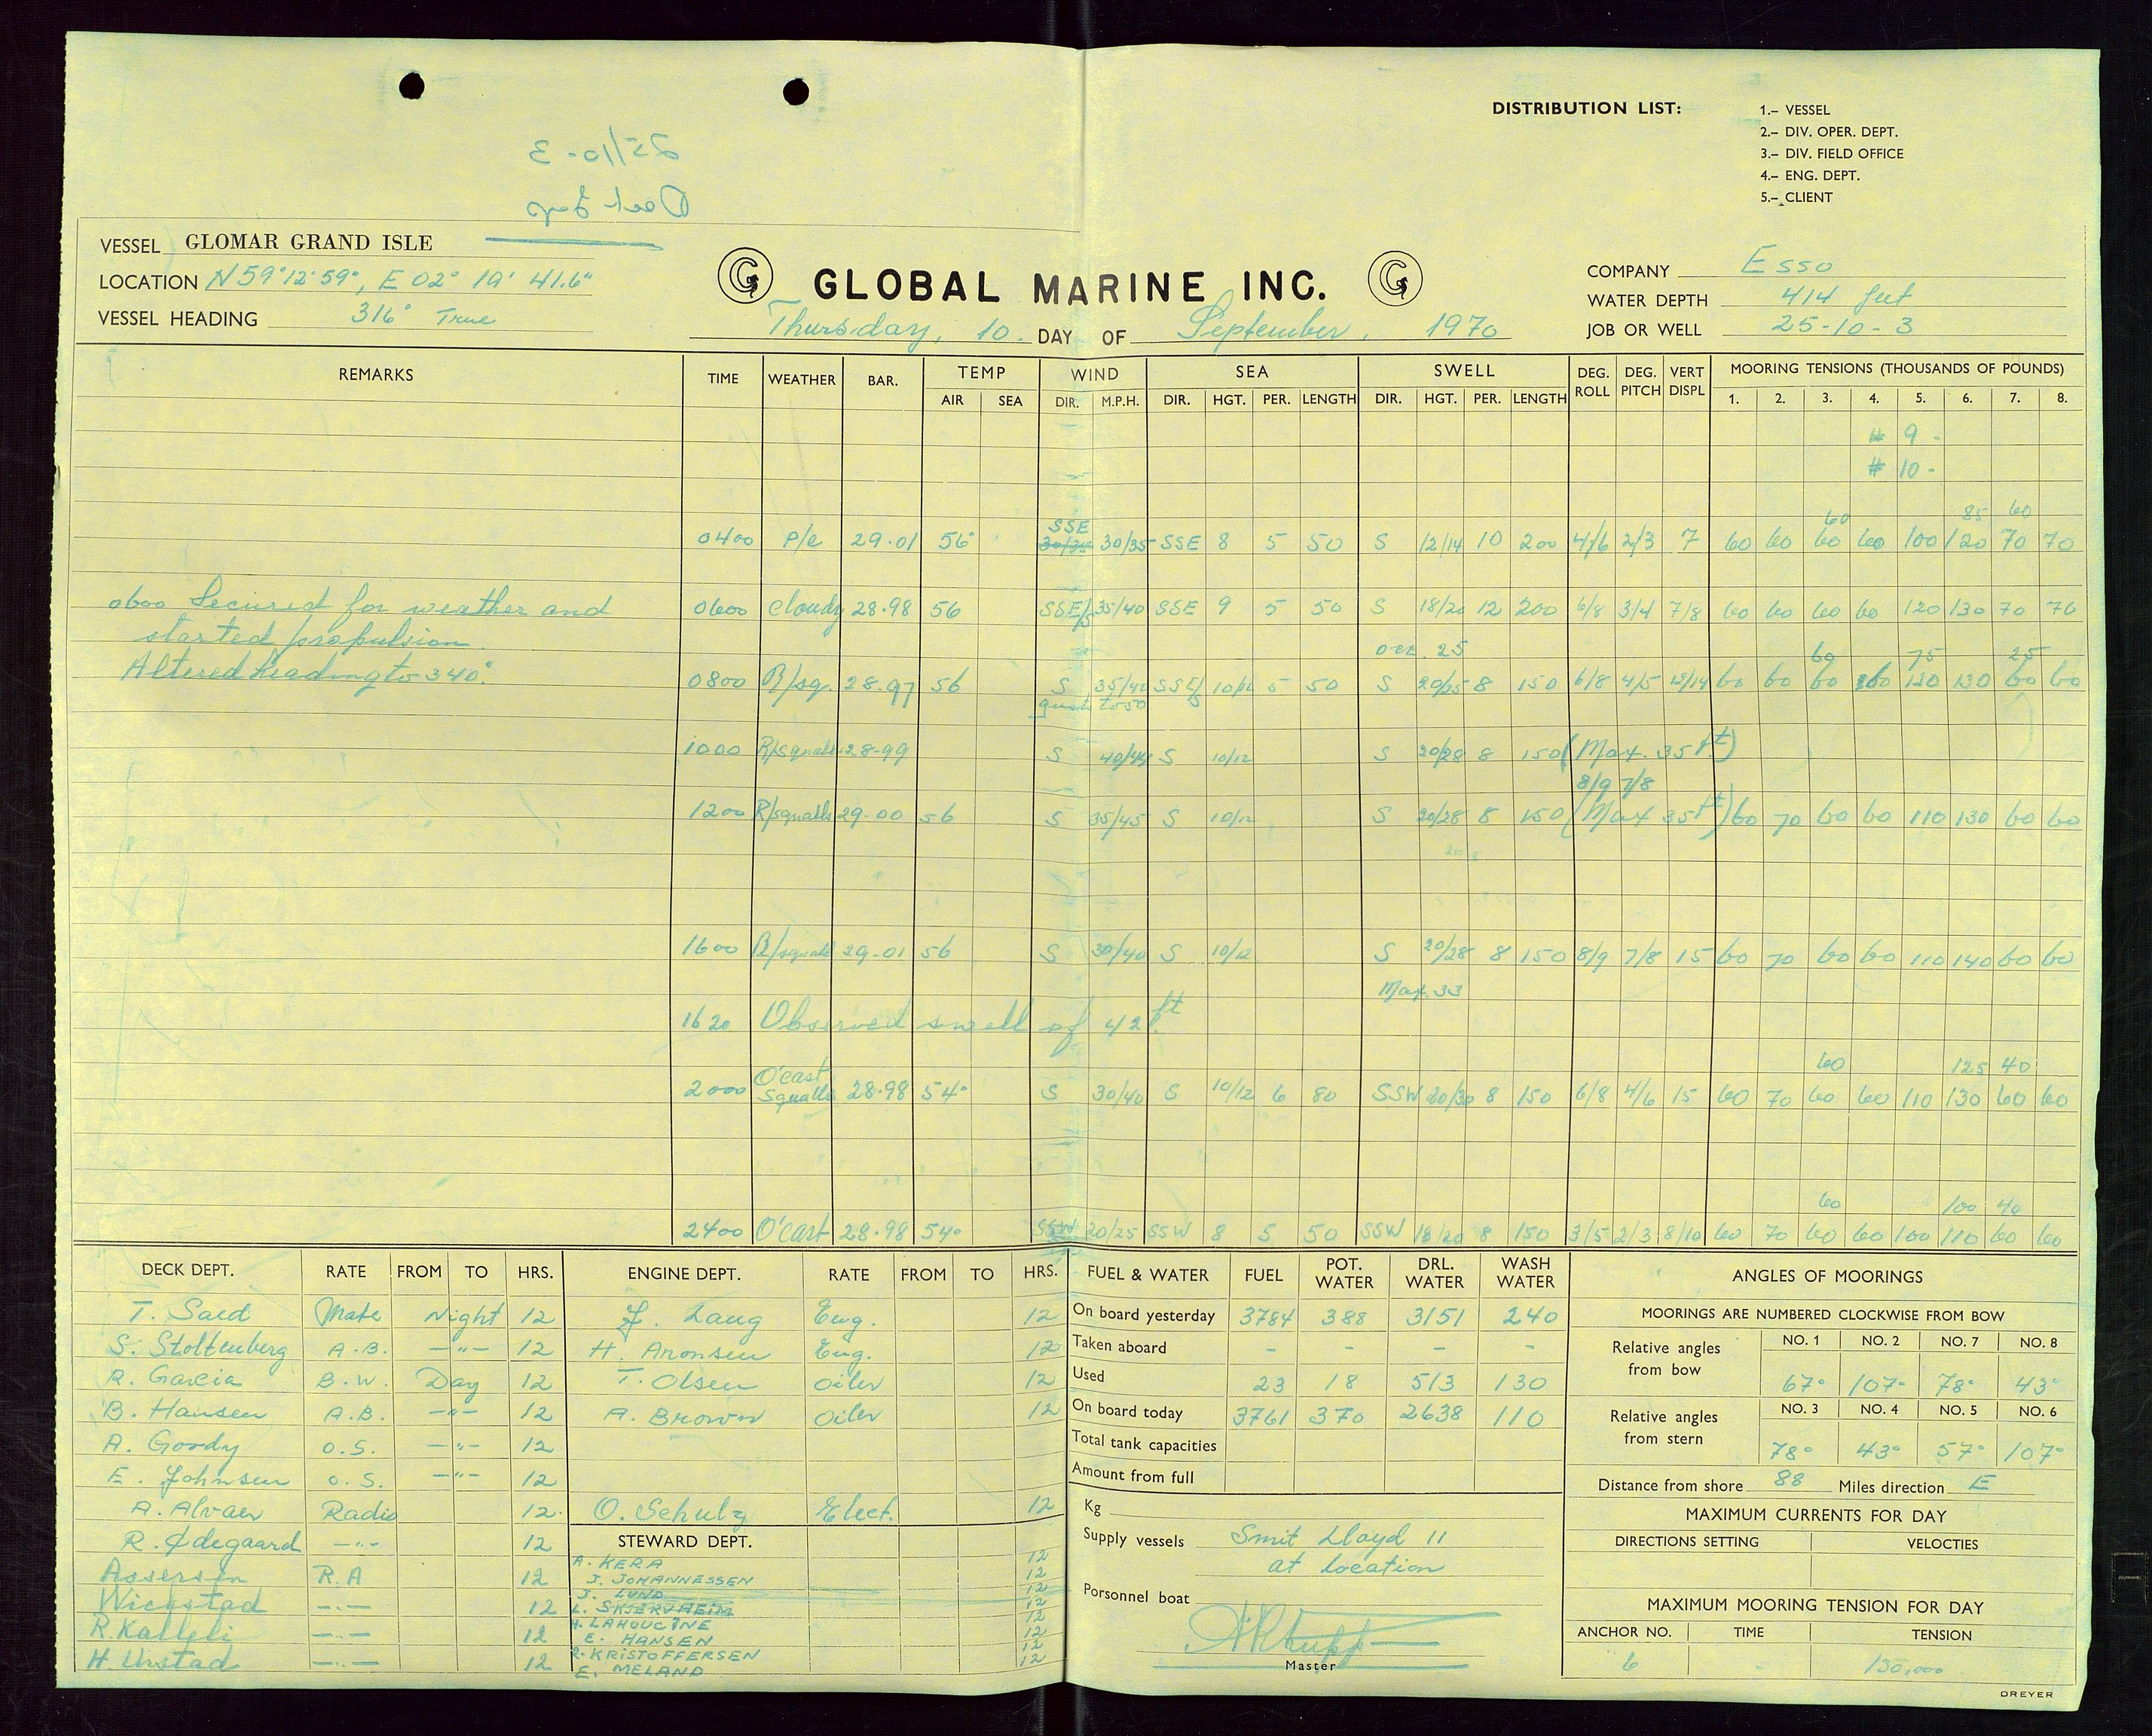 DISTRIBUTION LIST:
1.– VESSEL
2.– DIV. OPER. DEPT.
3.– DIV. FIELD OFFICE
4.– ENG. DEPT.
5.– CLIENT
25/10-3
VESSEL GLOMAR GRAND ISLE
LOCATION N 59° 12' 59", E 02° 19' 41.6"
VESSEL HEADING 316° True
GLOBAL MARINE INC.
Thursday, 10. DAY OF September, 1970
COMPANY Esso
WATER DEPTH 414 feet
JOB OR WELL 25-10-3
REMARKS TIME WEATHER BAR. TEMP WIND SEA SWELL DEG. ROLL DEG. PITCH VERT DISPL MOORING TENSIONS (THOUSANDS OF POUNDS)
AIR SEA DIR. M.P.H. DIR. HGT. PER. LENGTH DIR. HGT. PER. LENGTH 1. 2. 3. 4. 5. 6. 7. 8.
# 9 -
# 10 -
SSE 60 85 60
0400 P/c 29.01 56° 30/35 30/35 SSE 8 5 50 S 12/14 10 200 4/6 2/3 7 60 60 60 60 100 120 70 70
0600 Secured for weather and 0600 Cloudy 28.98 56 SSE/S 35/40 SSE 9 5 50 S 18/20 12 200 6/8 3/4 7/8 60 60 60 60 120 130 70 70
started propulsion. occ. 25 60 75 25
Altered heading to 340°. 0800 R/sq. 28.97 56 S 35/40 SSE/S 10/12 5 50 S 20/25 8 150 6/8 4/5 12/14 60 60 60 60 130 60 60
gusts to 50
1000 R/squalls 28.99 S 40/45 S 10/12 S 20/28 8 150 (Max. 35 ft)
8/9 7/8
1200 R/squalls 29.00 56 S 35/45 S 10/12 S 20/28 8 150 (Max 35 ft) 60 70 60 60 110 130 60 60
1600 R/squalls 29.01 56 S 30/40 S 10/12 S 20/28 8 150 8/9 7/8 15 60 70 60 60 110 140 60 60
Max. 33
1620 Observed swell of 42 ft.
60 125 40
2000 O'cast Squalls 28.98 54° S 30/40 S 10/12 6 80 SSW 20/30 8 150 6/8 4/6 15 60 70 60 60 110 130 60 60
60 100 40
2400 O'cast 28.98 54° SSW 20/25 SSW 8 5 50 SSW 18/20 8 150 3/5 2/3 8/10 60 70 60 60 100 110 60 60
DECK DEPT. RATE FROM TO HRS.
T. Saed Mate Night 12
S. Stoltenberg A.B. —"— 12
R. Garcia B.W. Day 12
B. Hansen A.B. —"— 12
A. Goody O.S. —"— 12
E. Johnsen O.S. —"— 12
A. Alvaer Radio 12
R. Ødegaard —"— 12
Assersen R.A 12
Wickstad —"— 12
R. Kalleli —"— 12
H. Unstad —"— 12
ENGINE DEPT. RATE FROM TO HRS.
J. Laug Eng. 12
H. Aronsen Eng. 12
T. Olsen Oiler 12
A. Brown Oiler 12
O. Schulz Elect. 12
STEWARD DEPT.
A. KERA 12
J. JOHANNESSEN 12
J. LUND 12
L. SKJERVHEIM 12
H. LAHOUCINE 12
E. HANSEN 12
R. KRISTOFFERSEN 12
E. MELAND 12
FUEL & WATER FUEL POT. WATER DRL. WATER WASH WATER
On board yesterday 3784 388 3151 240
Taken aboard - - - -
Used 23 18 513 130
On board today 3761 370 2638 110
Total tank capacities
Amount from full
Kg
Supply vessels Smit Lloyd 11
at location
Porsonnel boat
Master
ANGLES OF MOORINGS
MOORINGS ARE NUMBERED CLOCKWISE FROM BOW
Relative angles from bow NO. 1 NO. 2 NO. 7 NO. 8
67° 107° 78° 43°
Relative angles from stern NO. 3 NO. 4 NO. 5 NO. 6
78° 43° 57° 107°
Distance from shore 88 Miles direction E
MAXIMUM CURRENTS FOR DAY
DIRECTIONS SETTING VELOCTIES
MAXIMUM MOORING TENSION FOR DAY
ANCHOR NO. TIME TENSION
6 - 130,000
DREYER